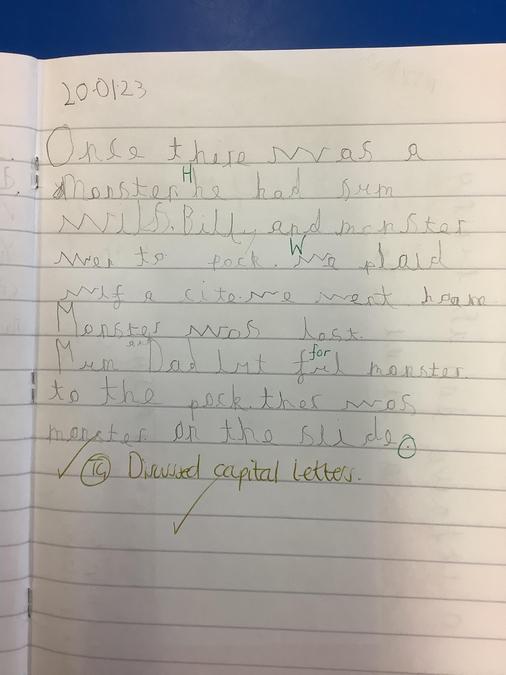 20.01.23
Once there was a
monster. He had sum
Billy and monster
wen to pock. We plaid
wif a cite. we went hoam
Monster was lost.
Mum and Dad lut for monster.
to the pock. ther was
monster on the slide.
TG Discussed capital letters.